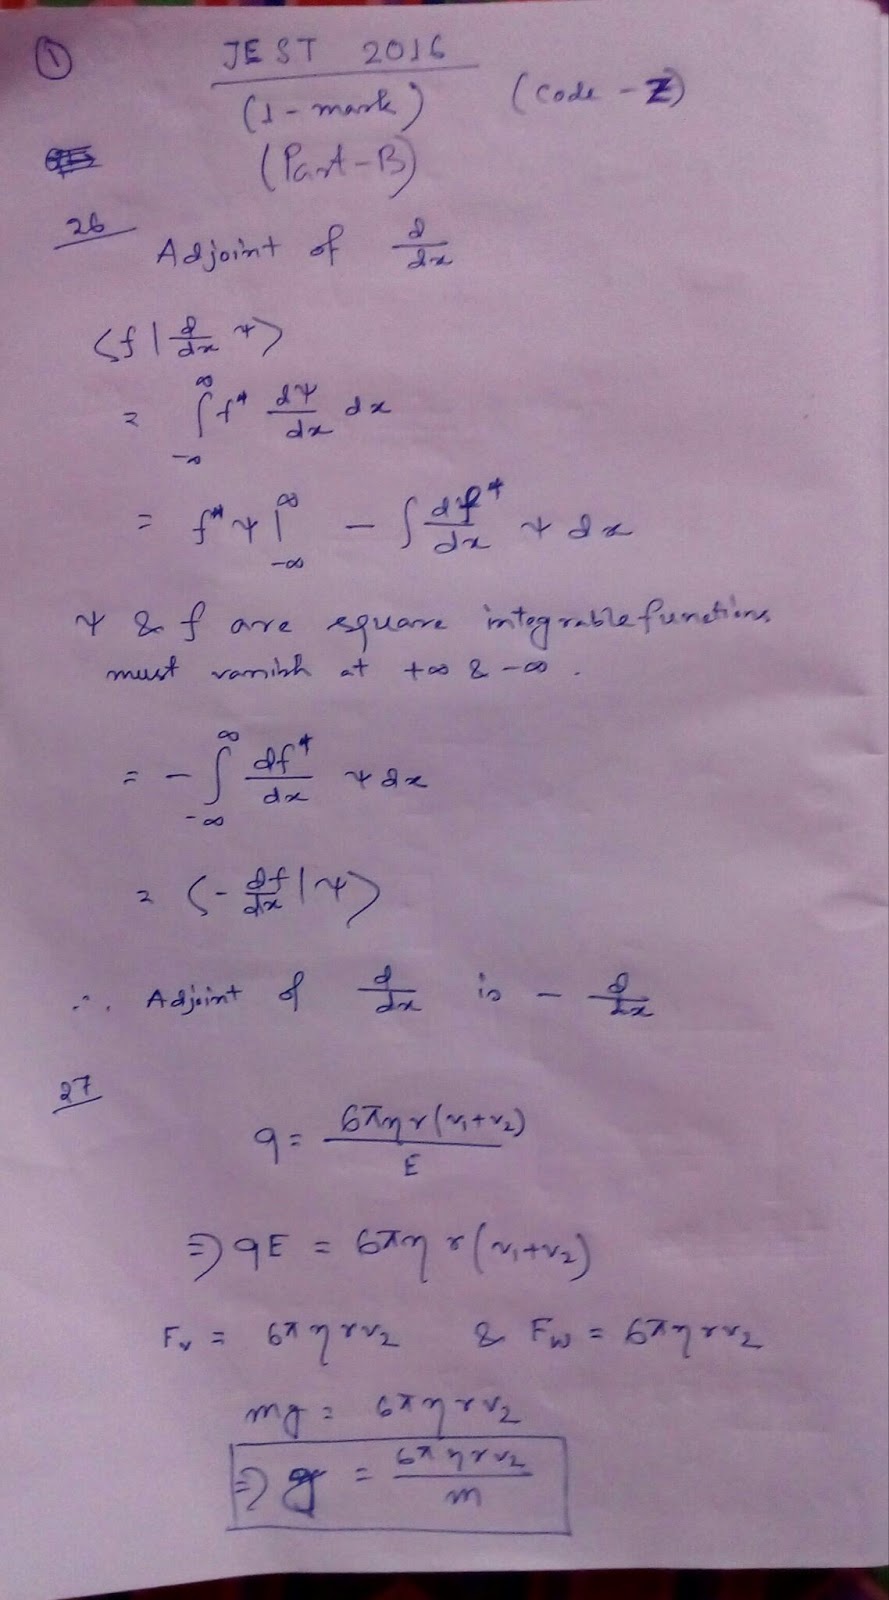 ①
JEST 2016
(1-mark) (code - Z)
(Part-B)
26 Adjoint of d/dx
⟨f | d/dx ψ⟩
= ∫_{-∞}^{∞} f* dψ/dx dx
= f*ψ |_{-∞}^{∞} - ∫ df*/dx ψ dx
ψ & f are square integrable functions
must vanish at +∞ & -∞ .
= - ∫_{-∞}^{∞} df*/dx ψ dx
= ⟨- df/dx | ψ⟩
∴ Adjoint of d/dx is - d/dx
27
q = 6πηr(v₁+v₂)/E
⇒ qE = 6πηr(v₁+v₂)
Fᵥ = 6πηrv₂ & F_W = 6πηrv₂
mg = 6πηrv₂
⇒ g = 6πηrv₂/m